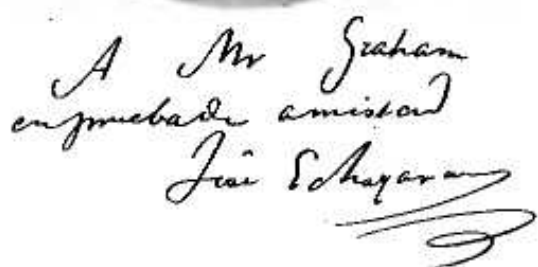 A Mr Graham
en prueba de amistad
José Echegaray